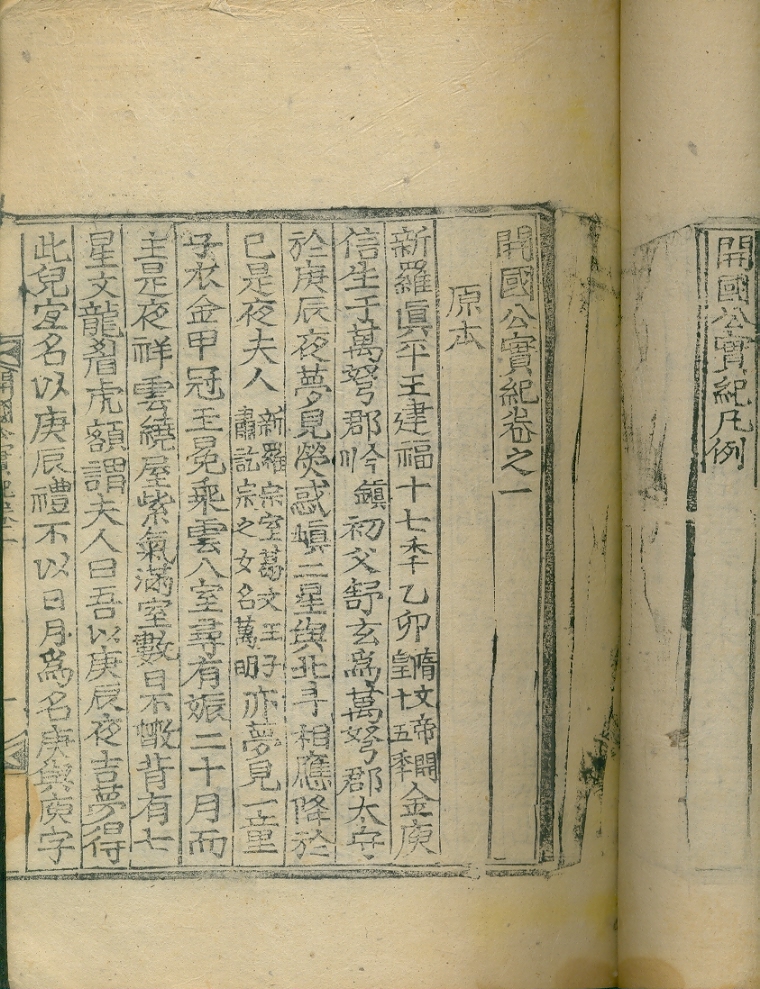 開國公實紀凡例
開國公實紀卷之一
原本
新羅眞平王建福十七季乙卯隋文帝開皇十五季金庾
信生于萬弩郡昑鎭初父舒玄爲萬弩郡太守
於庚辰夜夢見熒惑塡二星與北斗相應降於
已是夜夫人新羅宗室葛文王子肅訖宗之女名萬明亦夢見一童
子衣金甲冠玉冕乘雲入室尋有娠二十月而
主是夜祥雲繞屋紫氣滿室數日不散背有七
星文龍眉虎額謂夫人曰吾以庚辰夜吉夢得
此兒宜名以庚辰禮不以日月爲名庚與庾字